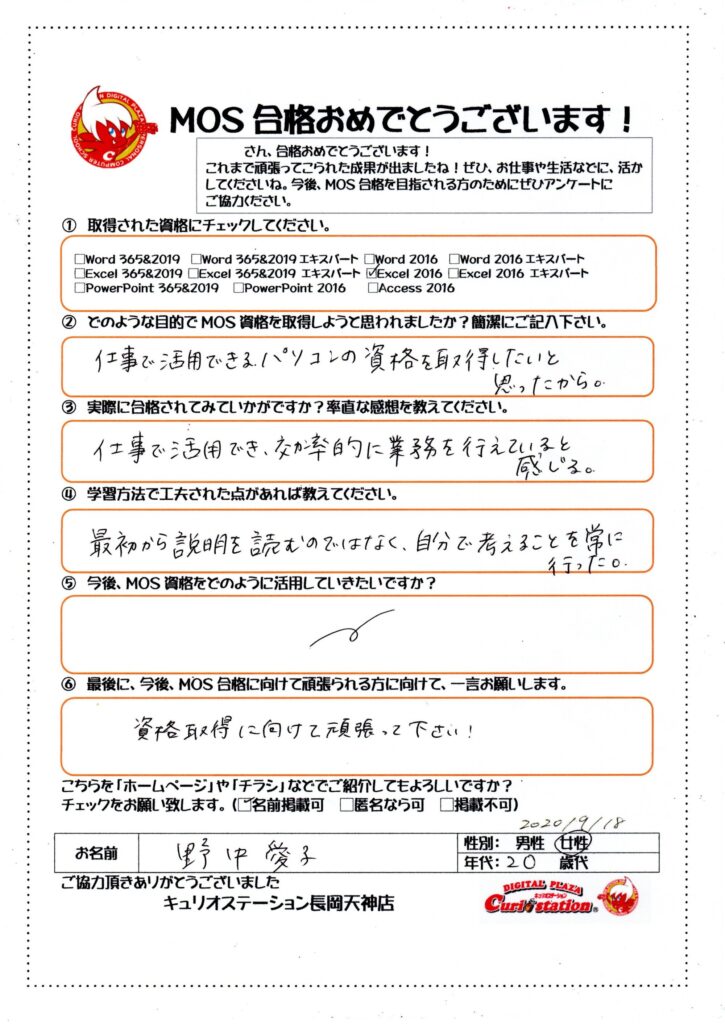 MOS 合格おめでとうございます！
さん、合格おめでとうございます！
これまで頑張ってこられた成果が出ましたね！ぜひ、お仕事や生活などに、活か
してくださいね。今後、MOS 合格を目指される方のためにぜひアンケートに
ご協力ください。
① 取得された資格にチェックしてください。
□Word 365&2019 □Word 365&2019 エキスパート □Word 2016 □Word 2016 エキスパート
□Excel 365&2019 □Excel 365&2019 エキスパート ☑Excel 2016 □Excel 2016 エキスパート
□PowerPoint 365&2019 □PowerPoint 2016 □Access 2016
② どのような目的で MOS 資格を取得しようと思われましたか？簡潔にご記入下さい。
仕事で活用できるパソコンの資格を取得したいと
思ったから。
③ 実際に合格されてみていかがですか？率直な感想を教えてください。
仕事で活用でき、効率的に業務を行えていると
感じる。
④ 学習方法で工夫された点があれば教えてください。
最初から説明を読むのではなく、自分で考えることを常に
行った。
⑤ 今後、MOS 資格をどのように活用していきたいですか？
⑥ 最後に、今後、MOS 合格に向けて頑張られる方に向けて、一言お願いします。
資格取得に向けて頑張って下さい！
こちらを「ホームページ」や「チラシ」などでご紹介してもよろしいですか？
チェックをお願い致します。（☑名前掲載可 □匿名なら可 □掲載不可）
2020/9/18
お名前 野中愛子 性別： 男性 女性
年代：20 歳代
ご協力頂きありがとうございました
キュリオステーション長岡天神店
DIGITAL PLAZA
キュリオステーション
Curio station®